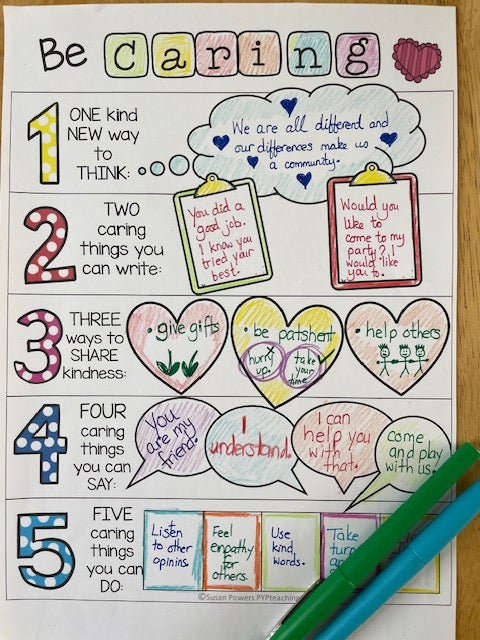 Be Caring
1
ONE kind
NEW way
to
THINK:
We are all different and
our differences make us
a community.
2
TWO
caring
things you
can write:
You did a
good job.
I know you
tried your
best.
Would you
like to
come to my
party? I
would like
you to.
3
THREE
ways to
SHARE
kindness:
• give gifts
• be patshent
hurry
up.
take
your
time
• help others
4
FOUR
caring
things
you can
SAY:
You
are my
friend.
I
understand.
I can
help you
with
that.
come
and play
with us.
5
FIVE
caring
things
you can
DO:
Listen
to other
opinins.
Feel
empathy
for
others.
Use
kind
words.
Take
turns
©Susan Powers PYPteaching